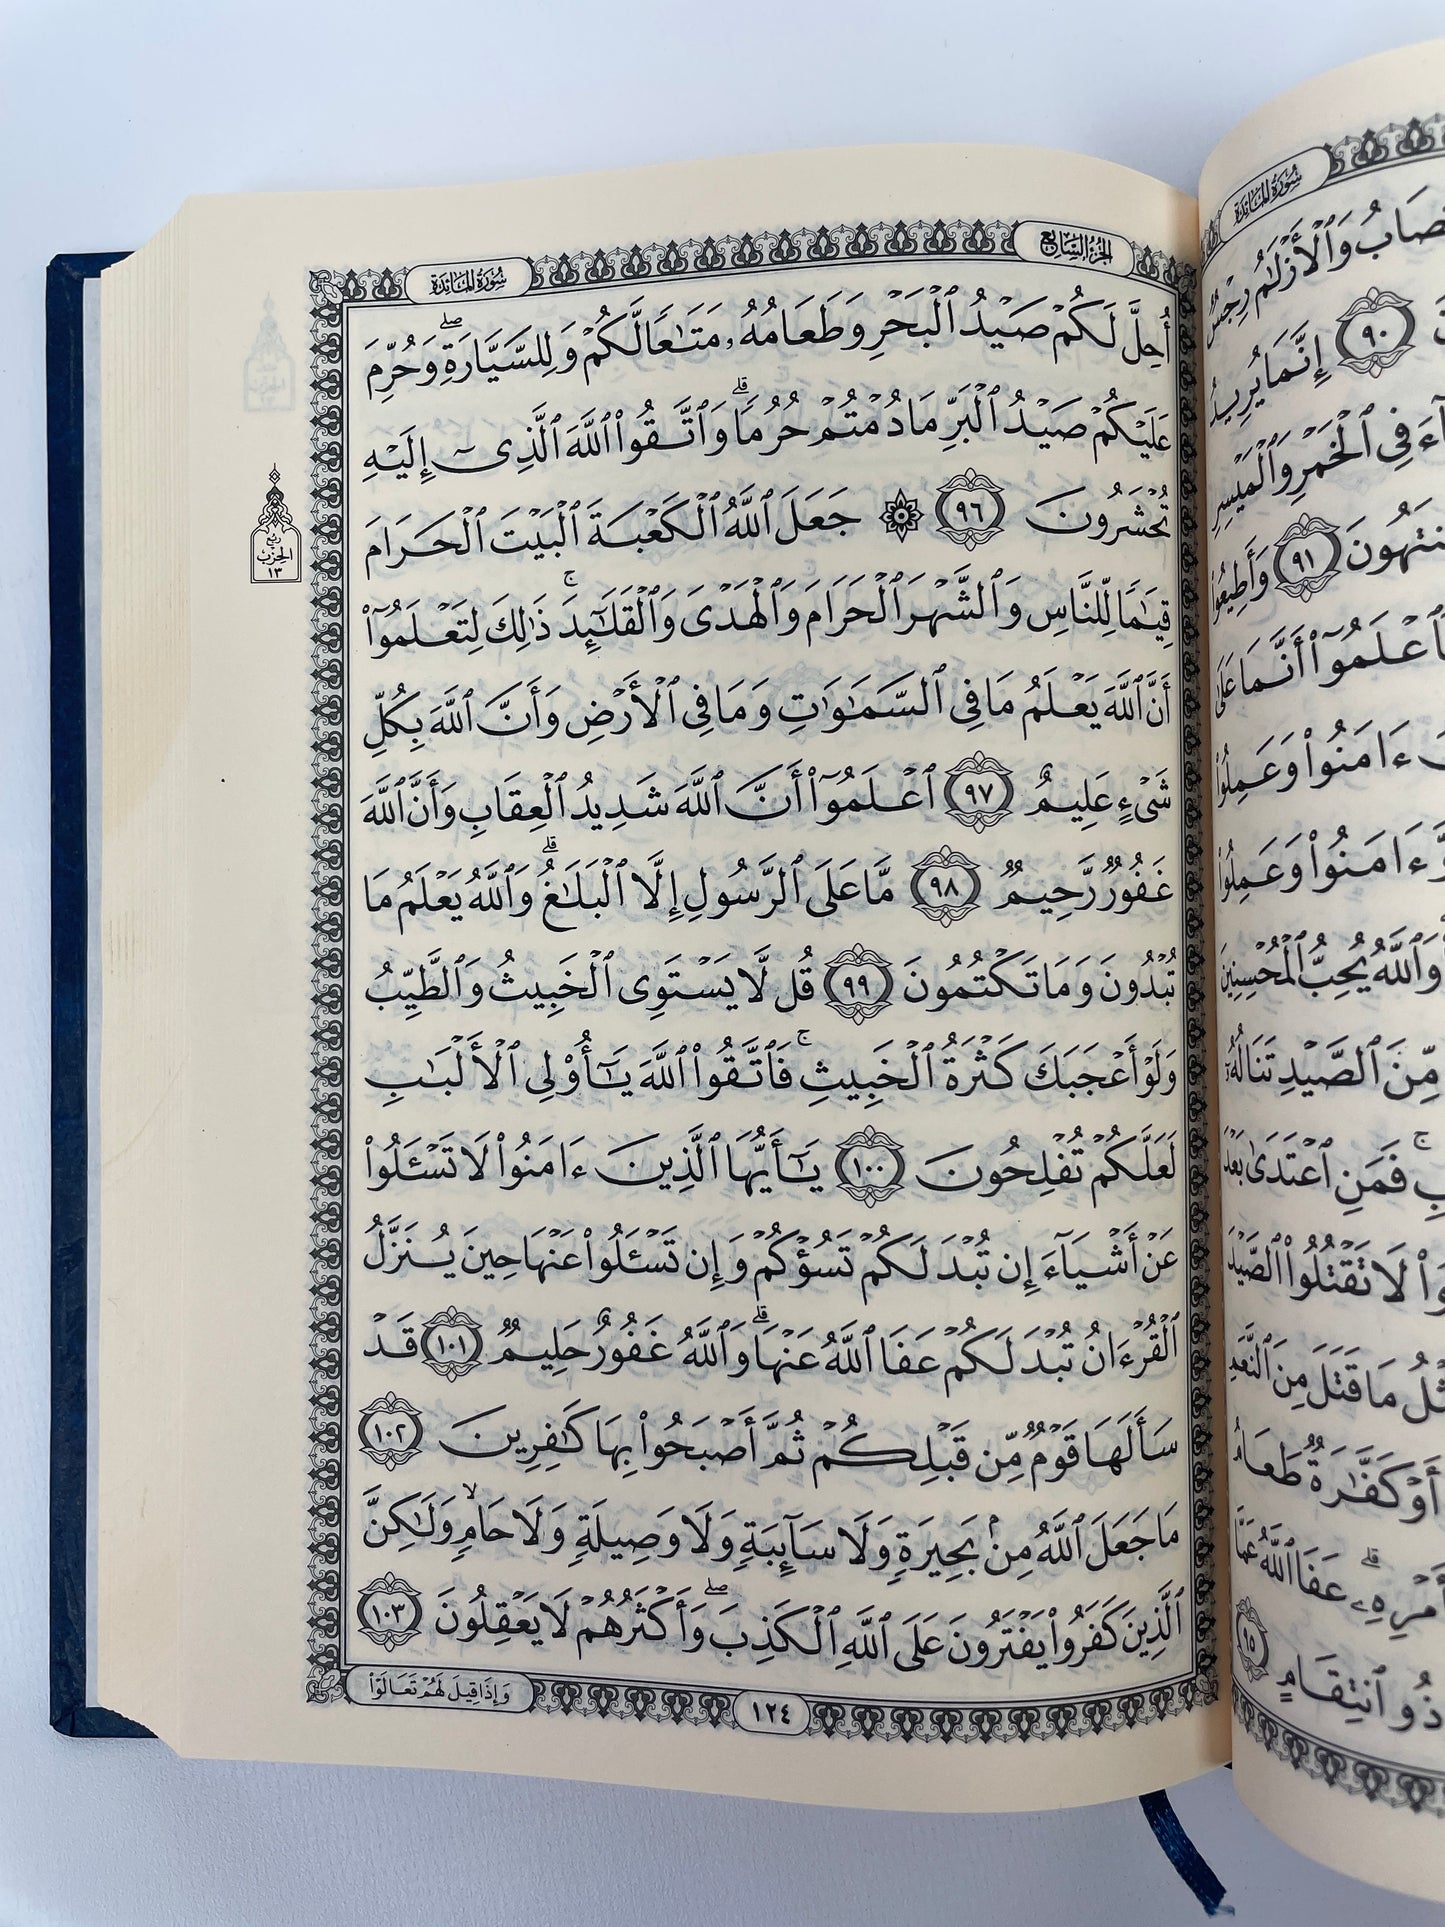 الجزء السابع
سورة المائدة
أُحِلَّ لَكُمْ صَيْدُ ٱلْبَحْرِ وَطَعَامُهُۥ مَتَٰعًا لَّكُمْ وَلِلسَّيَّارَةِ ۖ وَحُرِّمَ
عَلَيْكُمْ صَيْدُ ٱلْبَرِّ مَا دُمْتُمْ حُرُمًا ۗ وَٱتَّقُوا۟ ٱللَّهَ ٱلَّذِىٓ إِلَيْهِ
تُحْشَرُونَ ٩٦ ۞ جَعَلَ ٱللَّهُ ٱلْكَعْبَةَ ٱلْبَيْتَ ٱلْحَرَامَ
قِيَٰمًا لِّلنَّاسِ وَٱلشَّهْرَ ٱلْحَرَامَ وَٱلْهَدْىَ وَٱلْقَلَٰٓئِدَ ۚ ذَٰلِكَ لِتَعْلَمُوٓا۟
أَنَّ ٱللَّهَ يَعْلَمُ مَا فِى ٱلسَّمَٰوَٰتِ وَمَا فِى ٱلْأَرْضِ وَأَنَّ ٱللَّهَ بِكُلِّ
شَىْءٍ عَلِيمٌ ٩٧ ٱعْلَمُوٓا۟ أَنَّ ٱللَّهَ شَدِيدُ ٱلْعِقَابِ وَأَنَّ ٱللَّهَ
غَفُورٌ رَّحِيمٌ ٩٨ مَّا عَلَى ٱلرَّسُولِ إِلَّا ٱلْبَلَٰغُ ۗ وَٱللَّهُ يَعْلَمُ مَا
تُبْدُونَ وَمَا تَكْتُمُونَ ٩٩ قُل لَّا يَسْتَوِى ٱلْخَبِيثُ وَٱلطَّيِّبُ
وَلَوْ أَعْجَبَكَ كَثْرَةُ ٱلْخَبِيثِ ۚ فَٱتَّقُوا۟ ٱللَّهَ يَٰٓأُو۟لِى ٱلْأَلْبَٰبِ
لَعَلَّكُمْ تُفْلِحُونَ ١٠٠ يَٰٓأَيُّهَا ٱلَّذِينَ ءَامَنُوا۟ لَا تَسْـَٔلُوا۟
عَنْ أَشْيَآءَ إِن تُبْدَ لَكُمْ تَسُؤْكُمْ وَإِن تَسْـَٔلُوا۟ عَنْهَا حِينَ يُنَزَّلُ
ٱلْقُرْءَانُ تُبْدَ لَكُمْ عَفَا ٱللَّهُ عَنْهَا ۗ وَٱللَّهُ غَفُورٌ حَلِيمٌ ١٠١ قَدْ
سَأَلَهَا قَوْمٌ مِّن قَبْلِكُمْ ثُمَّ أَصْبَحُوا۟ بِهَا كَٰفِرِينَ ١٠٢
مَا جَعَلَ ٱللَّهُ مِنۢ بَحِيرَةٍ وَلَا سَآئِبَةٍ وَلَا وَصِيلَةٍ وَلَا حَامٍ ۙ وَلَٰكِنَّ
ٱلَّذِينَ كَفَرُوا۟ يَفْتَرُونَ عَلَى ٱللَّهِ ٱلْكَذِبَ ۖ وَأَكْثَرُهُمْ لَا يَعْقِلُونَ ١٠٣
وَإِذَا قِيلَ لَهُمْ تَعَالَوْا۟
١٢٤
ربع
الحزب
١٣
سورة المائدة
وَٱلْأَزْلَٰمُ رِجْسٌ
٩٠ إِنَّمَا يُرِيدُ
فِى ٱلْخَمْرِ وَٱلْمَيْسِرِ
٩١ وَأَطِيعُوا۟
ٱعْلَمُوٓا۟ أَنَّمَا عَلَىٰ
ءَامَنُوا۟ وَعَمِلُوا۟
وَّءَامَنُوا۟ وَعَمِلُوا۟
وَٱللَّهُ يُحِبُّ ٱلْمُحْسِنِينَ
مِّنَ ٱلصَّيْدِ تَنَالُهُۥٓ
ۚ فَمَنِ ٱعْتَدَىٰ بَعْدَ
لَا تَقْتُلُوا۟ ٱلصَّيْدَ
مَا قَتَلَ مِنَ ٱلنَّعَمِ
أَوْ كَفَّٰرَةٌ طَعَامُ
ۗ عَفَا ٱللَّهُ عَمَّا
٩٥
ذُو ٱنتِقَامٍ